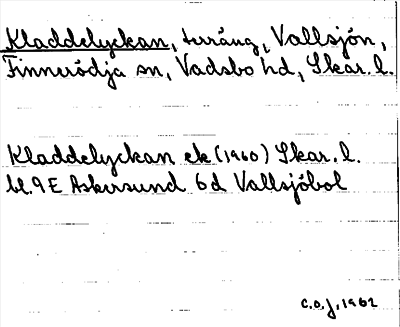 Kladdelyckan, terräng, Vallsjön,
Finnerödja sn, Vadsbo hd, Skar. l.
Kladdelyckan ek (1960) Skar. l.
bl. 9E Askersund 6d Vallsjöbol
C.O.J, 1962